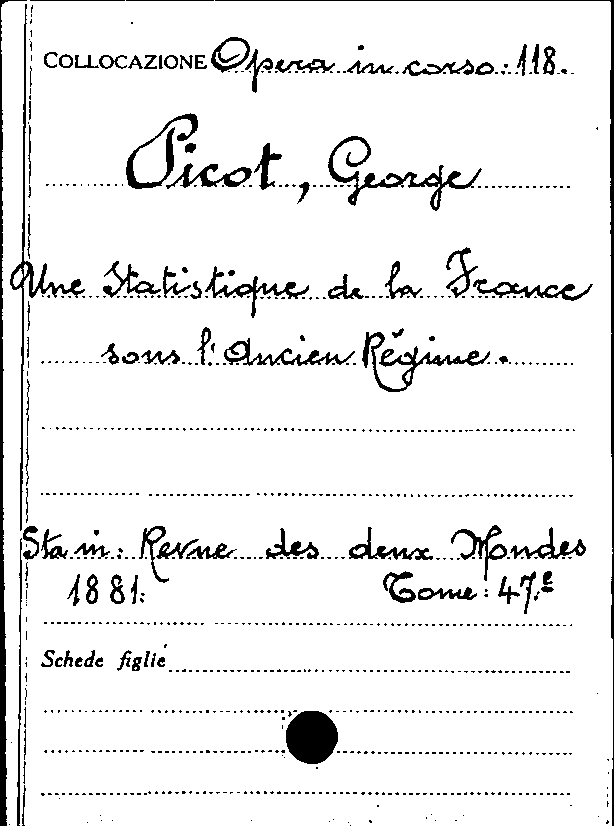 COLLOCAZIONE Opera in corso: 118.
Picot, George
Une Statistique de la France
sons l'Ancien Régime.
Sta in: Revne des deux Mondes
1881. Tome: 47.e
Schede figlie